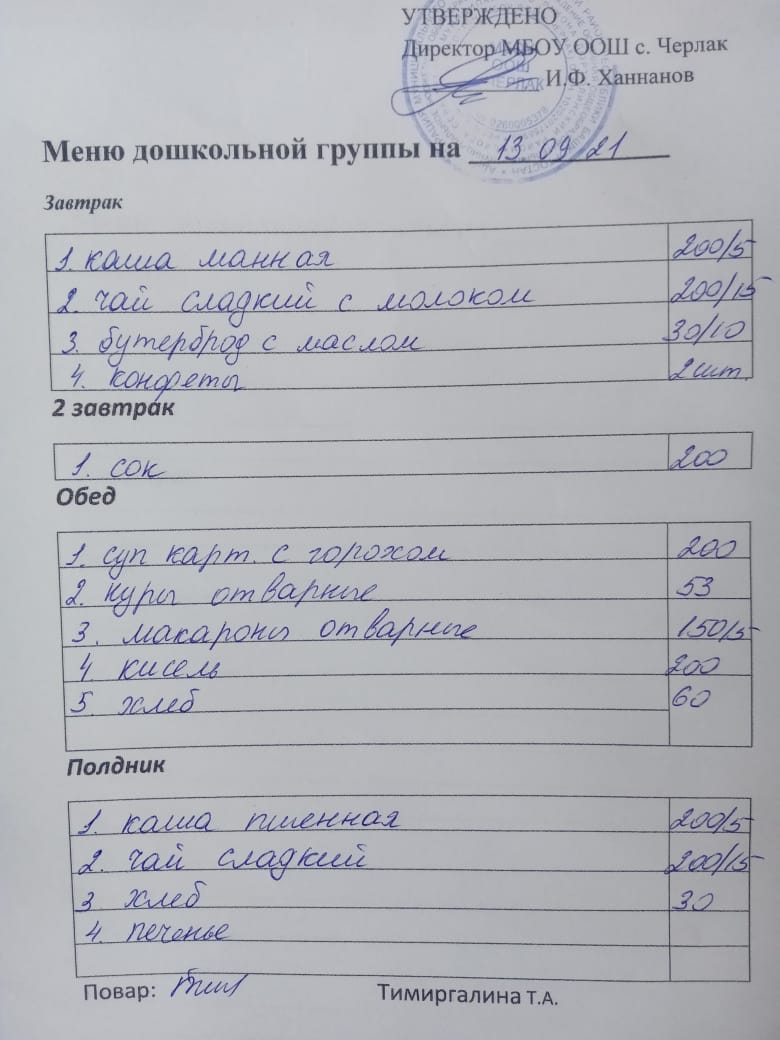 УТВЕРЖДЕНО
Директор МБОУ ООШ с. Черлак
И.Ф. Ханнанов
ООШ
ЧЕРЛАК
0260005378
Меню дошкольной группы на 13 09 21
Завтрак
1. каша манная 200/5
2. чай сладкий с молоком 200/15
3. бутерброд с маслом 30/10
4. конфеты 2шт.
2 завтрак
1. сок 200
Обед
1. суп карт. с горохом 200
2. куры отварные 53
3. макароны отварные 150/5
4 кисель 200
5. хлеб 60
Полдник
1. каша пшенная 200/5
2. чай сладкий 200/15
3 хлеб 30
4. печенье
Повар: Тимиргалина Т.А.